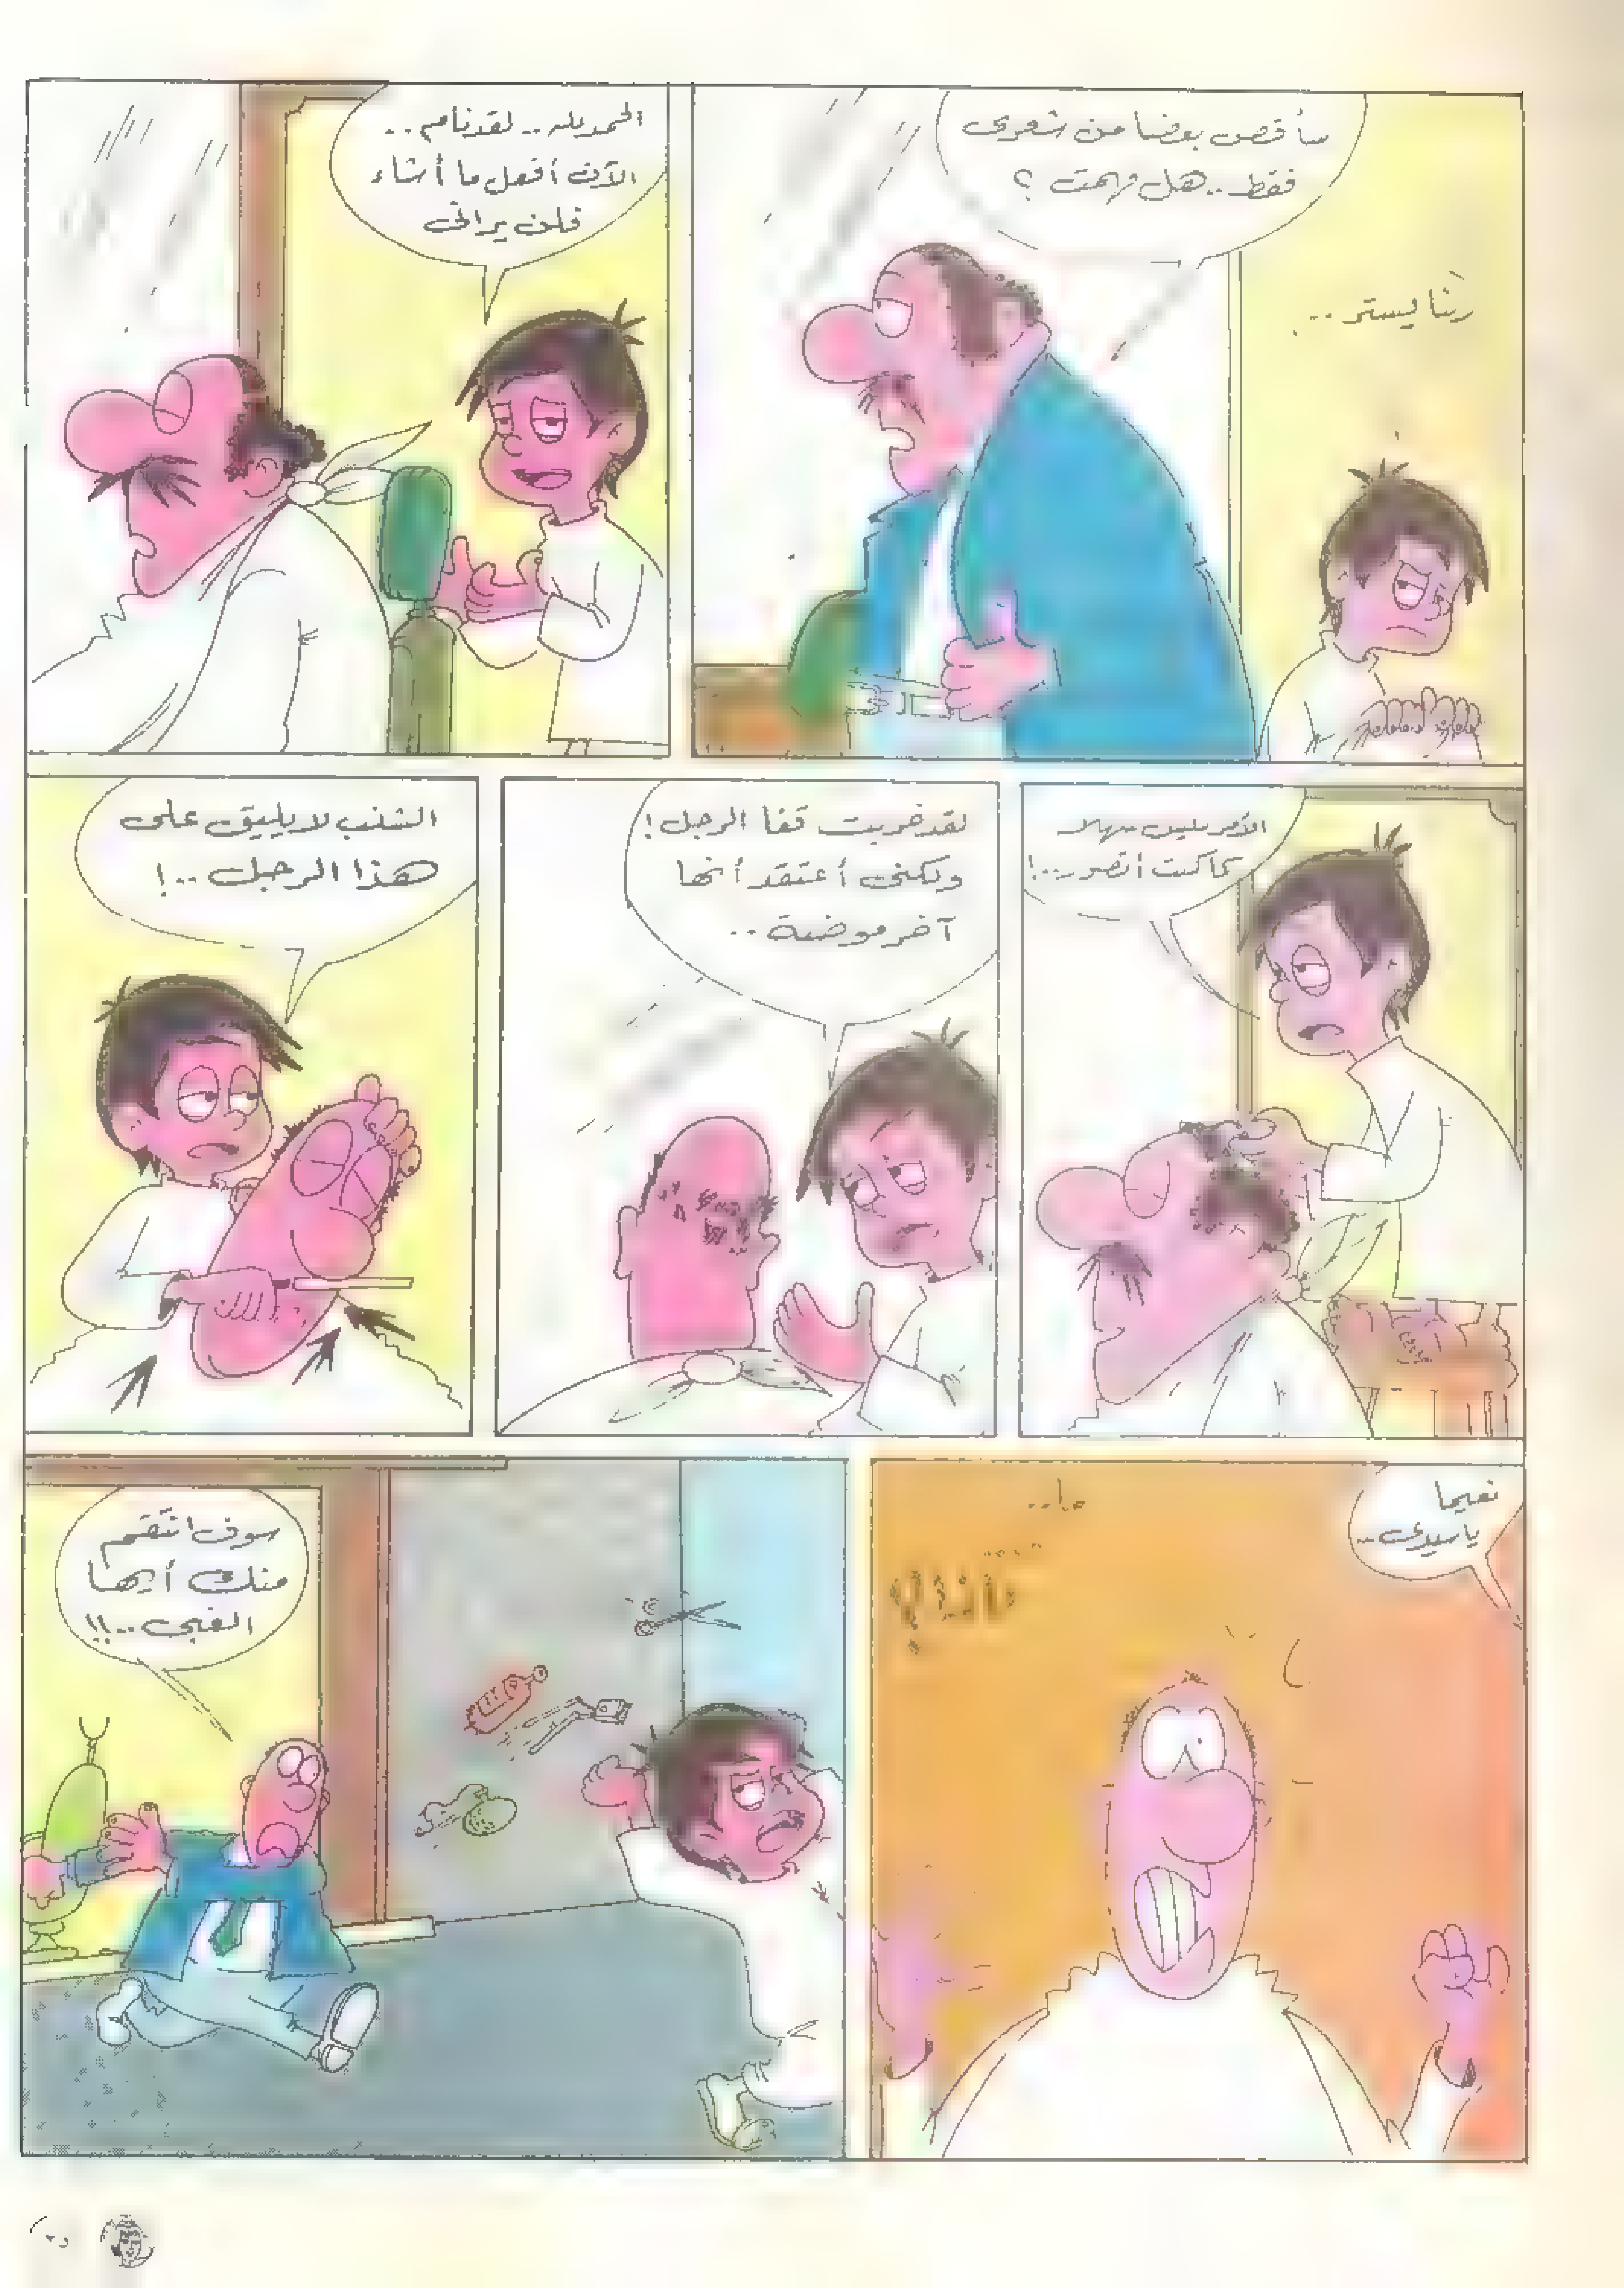 سأقص بعضا من شعرى
فقط.. هل فهمت ؟
ربنا يستر..
الحمد لله.. لقد نام..
الآن أفعل ما أشاء
فلن يرانى
الأمر ليس سهلا
كما كنت أتصور..!
لقد خربت قفا الرجل!
ولكنى أعتقد أنها
آخر موضة..
الشنب لا يليق على
هذا الرجل..!
نعيما
يا سيدى..
ما..
سوف انتقم
منك أيها
الغبى..!!